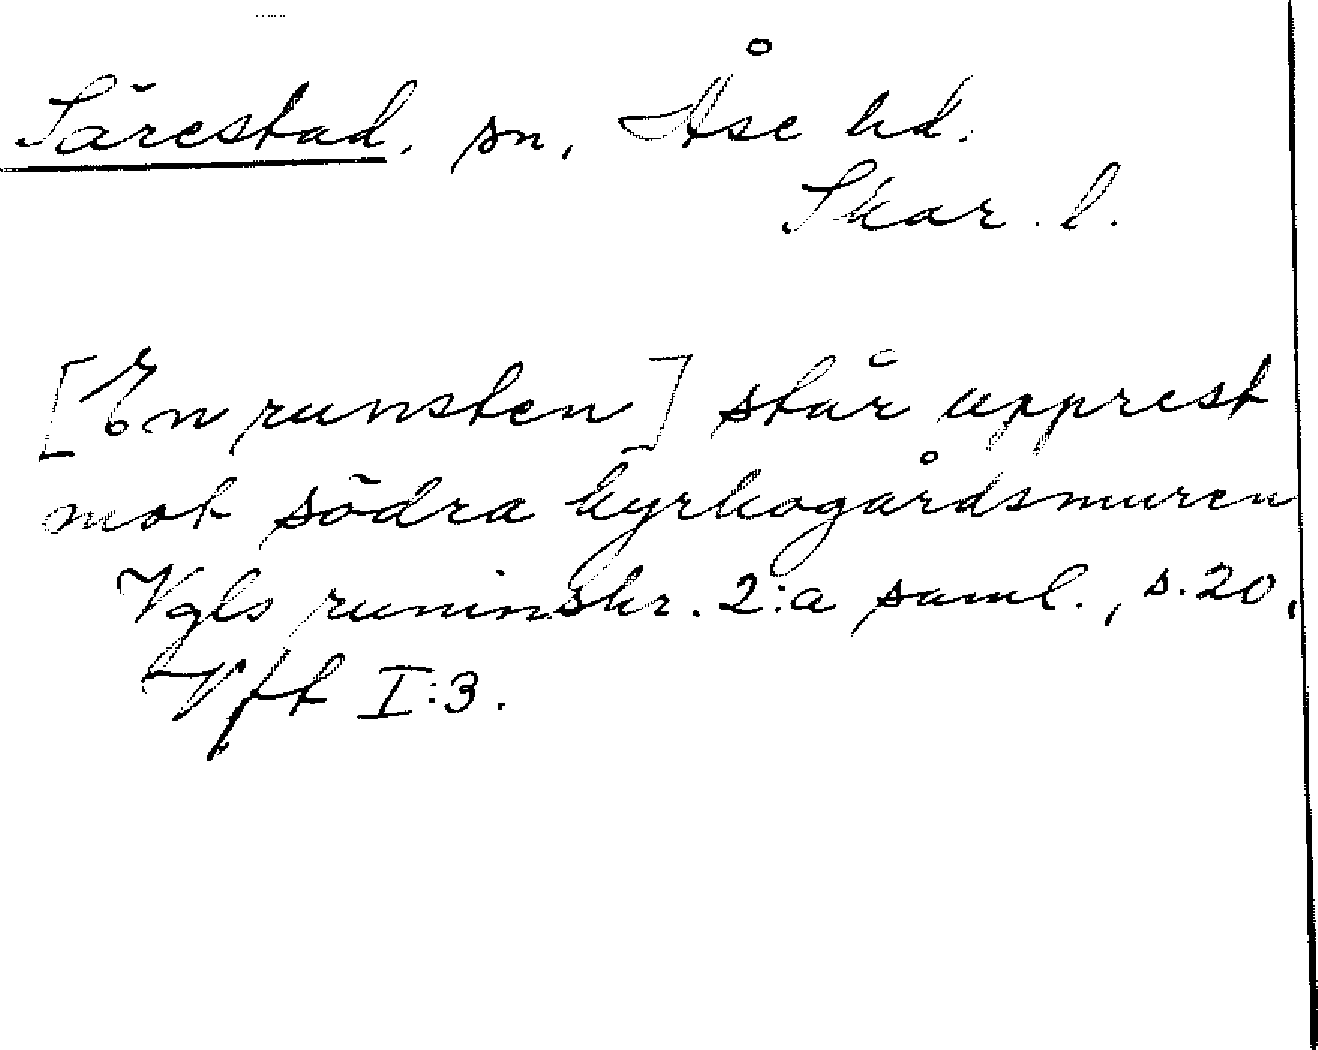 Särestad. sn, Åse hd.
Skar. l.
[En runsten] står upprest
mot södra kyrkogårdsmuren
Vgls runinskr. 2:a saml., s. 20,
Vft I:3.